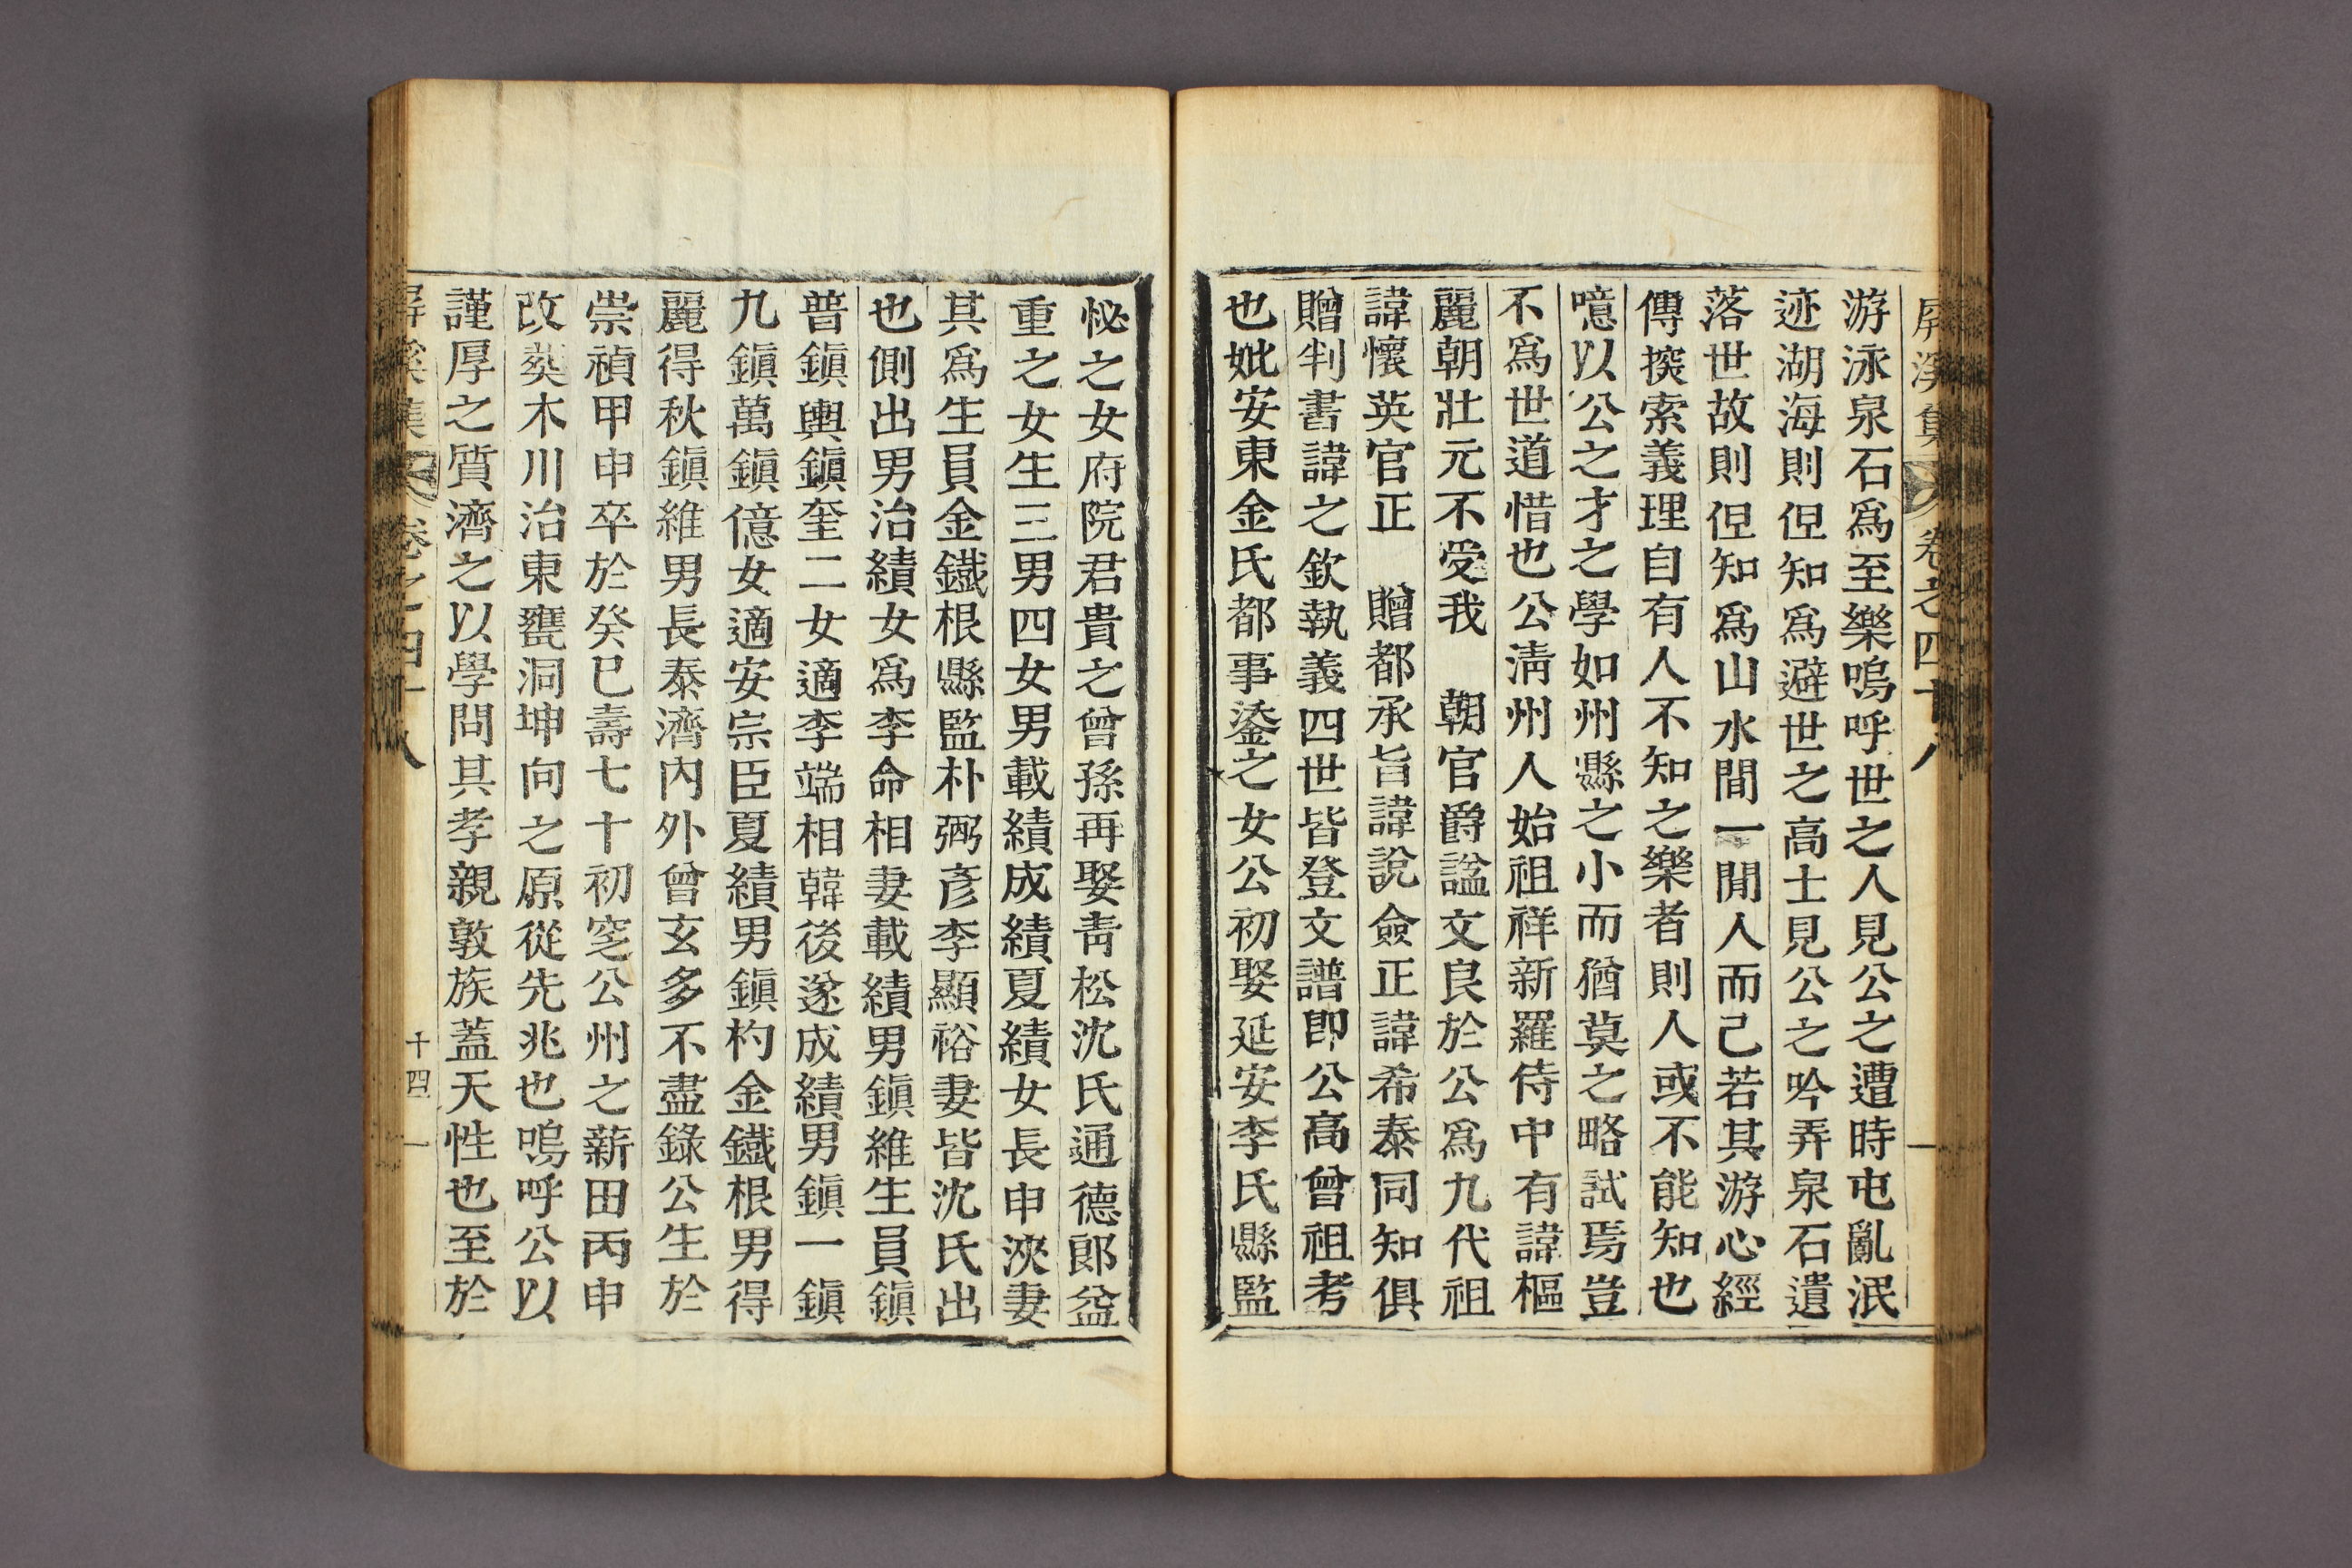 屛溪集 卷之四十八
游泳泉石爲至樂嗚呼世之人見公之遭時屯亂泯
迹湖海則但知爲避世之高士見公之吟弄泉石遺
落世故則但知爲山水間一閒人而己若其游心經
傳探索義理自有人不知之樂者則人或不能知也
噫以公之才之學如州縣之小而猶莫之略試焉豈
不爲世道惜也公淸州人始祖祥新羅侍中有諱樞
麗朝壯元不受我 朝官爵諡文良於公爲九代祖
諱懷英官正 贈都承旨諱說僉正諱希泰同知俱
贈判書諱之欽執義四世皆登文譜卽公高曾祖考
也妣安東金氏都事鎏之女公初娶延安李氏縣監
怭之女府院君貴之曾孫再娶靑松沈氏通德郞益
重之女生三男四女男載績成績夏績女長申浹妻
其爲生員金鐵根縣監朴弼彦李顯裕妻皆沈氏出
也側出男治績女爲李命相妻載績男鎭維生員鎭
普鎭輿鎭奎二女適李端相韓後遂成績男鎭一鎭
九鎭萬鎭億女適安宗臣夏績男鎭杓金鐵根男得
麗得秋鎭維男長泰濟內外曾玄多不盡錄公生於
崇禎甲申卒於癸巳壽七十初窆公州之薪田丙申
改葬木川治東甕洞坤向之原從先兆也嗚呼公以
謹厚之質濟之以學問其孝親敦族蓋天性也至於
屛溪集 卷之四十八 十四